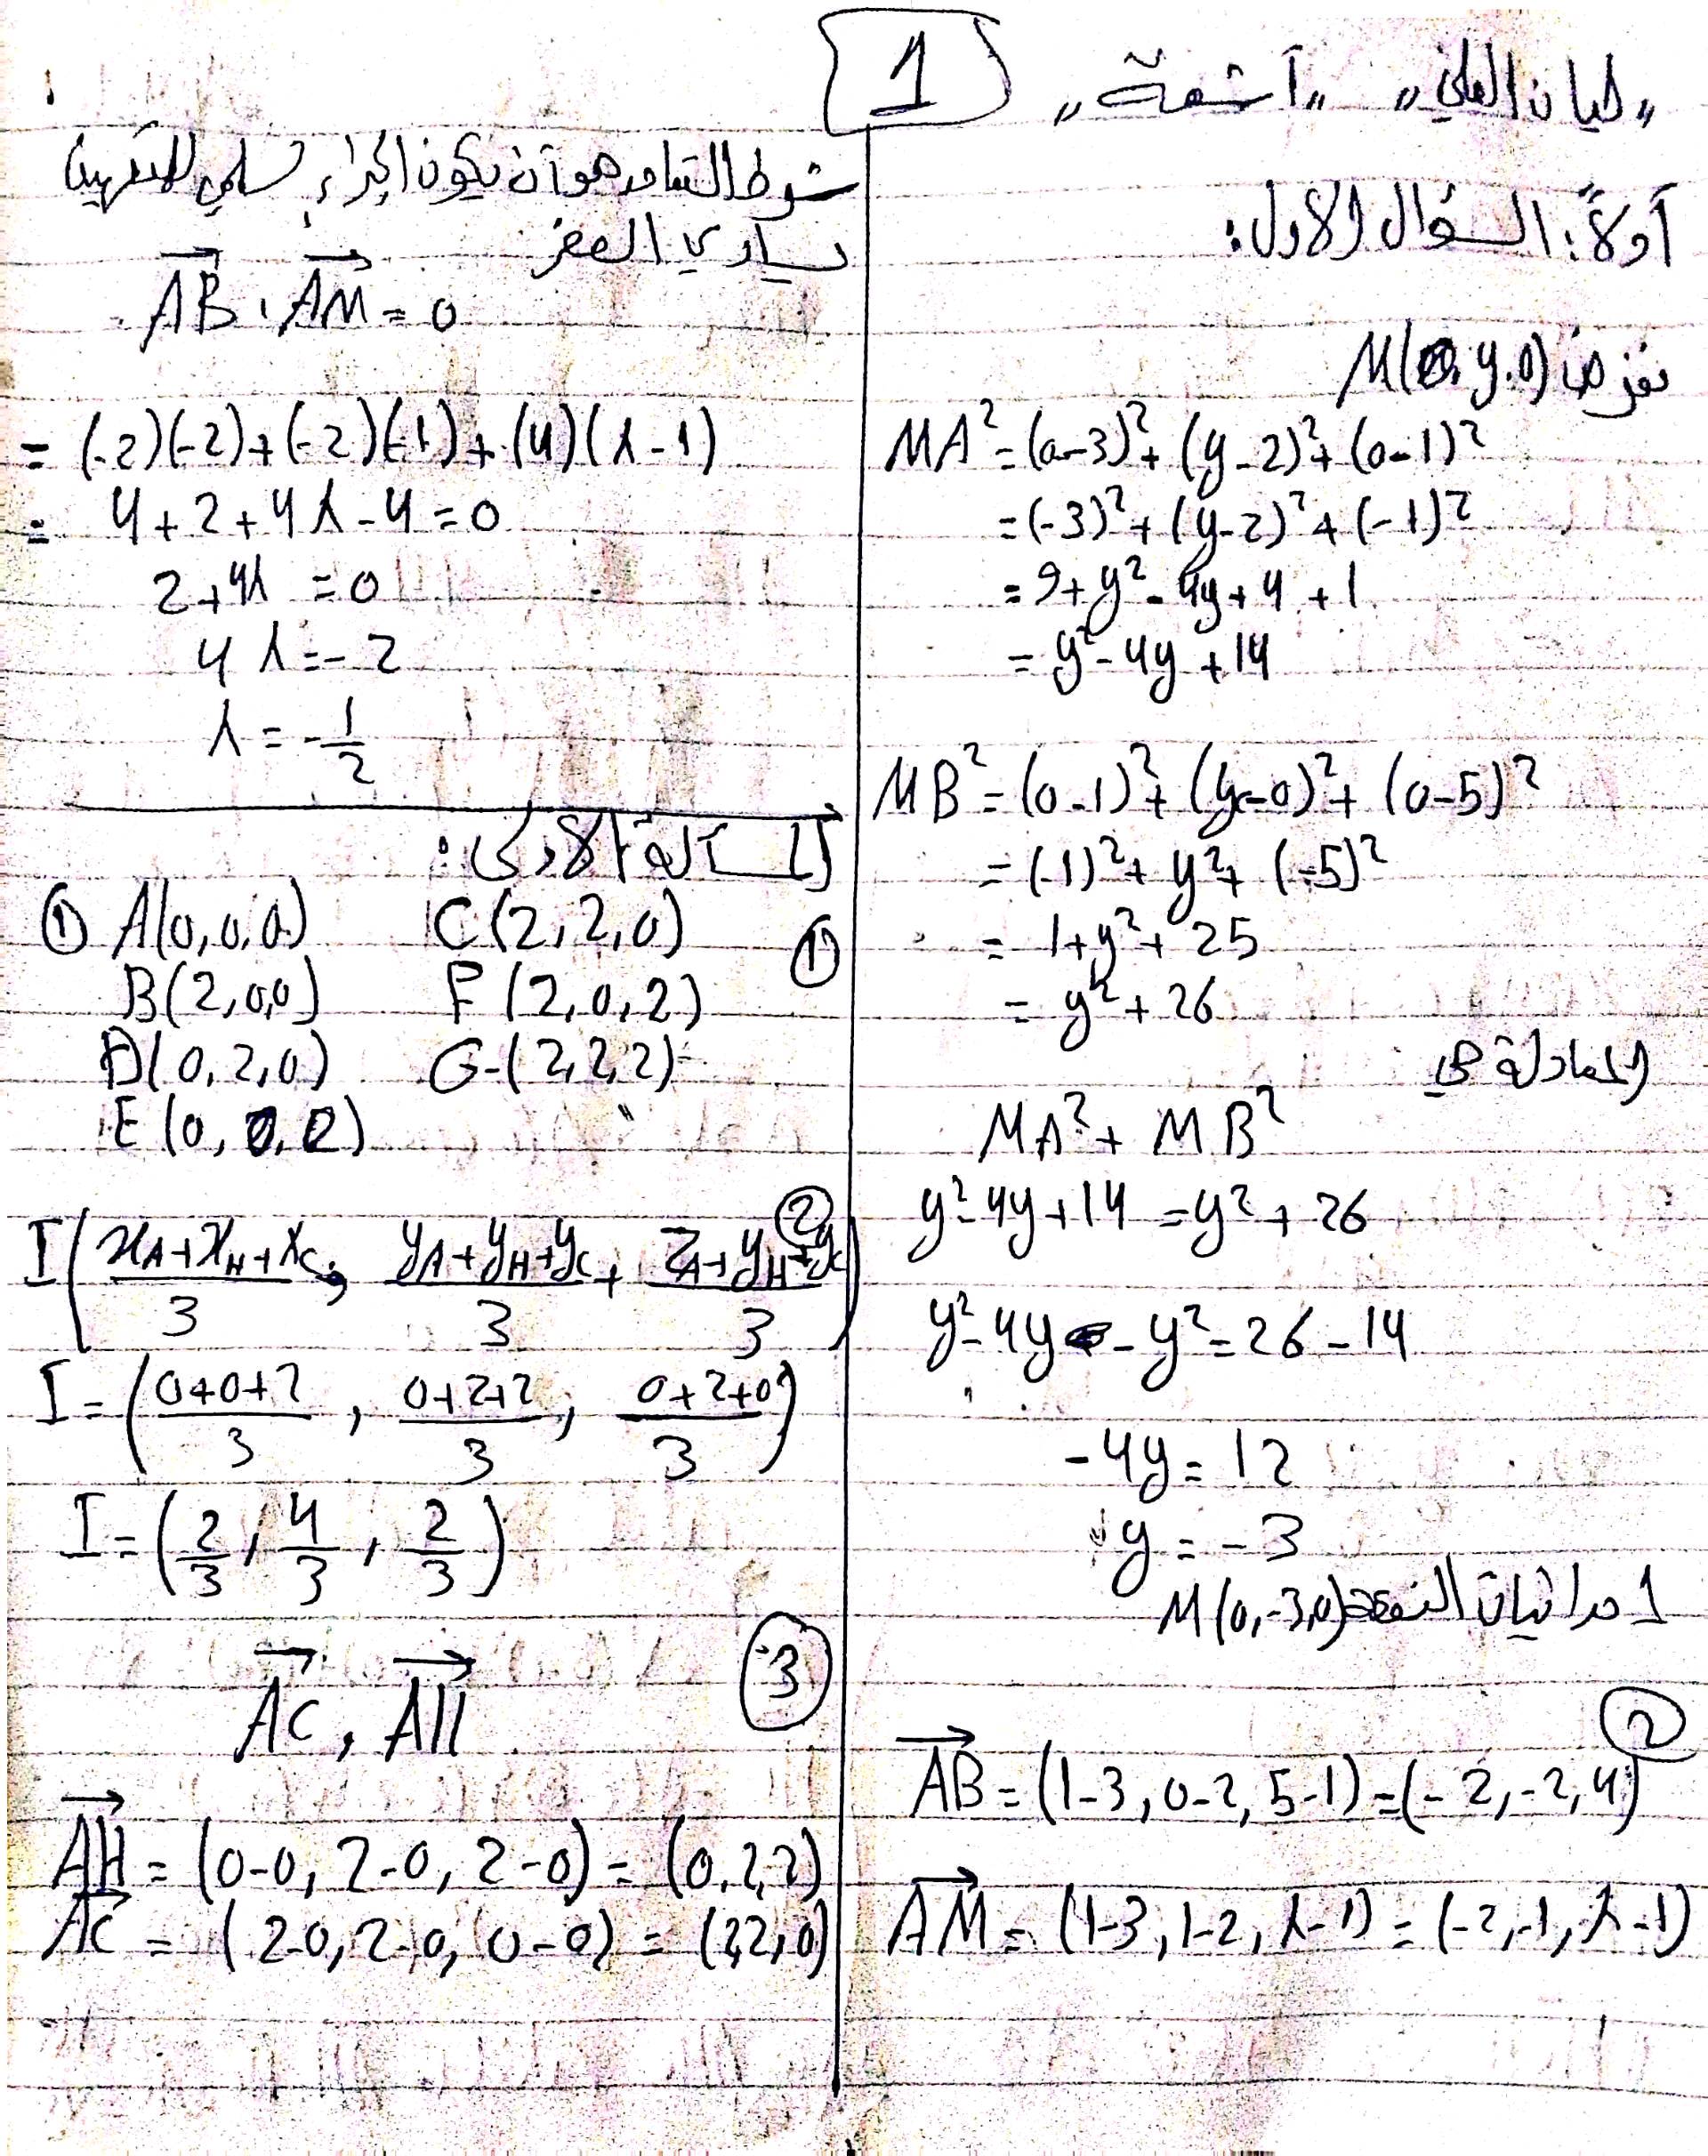 1
„ليان العلي„ „آشعة„
أولاً: السؤال الاول:
نفرض M(0,y,0)
MA² = (0-3)² + (y-2)² + (0-1)²
= (-3)² + (y-2)² + (-1)²
= 9 + y² - 4y + 4 + 1
= y² - 4y + 14
MB² = (0-1)² + (y-0)² + (0-5)²
= (-1)² + y² + (-5)²
= 1 + y² + 25
= y² + 26
المعادلة هي
MA² + MB²
y² - 4y + 14 = y² + 26
y² - 4y - y² = 26 - 14
-4y = 12
y = -3
احداثيات النقطة M(0,-3,0)
②
AB = (1-3, 0-2, 5-1) = (-2, -2, 4)
AM = (1-3, 1-2, λ-1) = (-2, -1, λ-1)
شرط التعامد هو آن يكون الجداء سلمي للشعاعين
يساوي الصفر
AB . AM = 0
= (-2)(-2) + (-2)(-1) + (4)(λ-1)
= 4 + 2 + 4λ - 4 = 0
2 + 4λ = 0
4λ = -2
λ = -1/2
المسآلة الاولى:
① A(0,0,0) C(2,2,0) ①
B(2,0,0) F(2,0,2)
D(0,2,0) G(2,2,2)
E(0,0,2)
②
I((xA+xH+xC)/3, (yA+yH+yC)/3, (zA+yH+yC)/3)
I = ((0+0+2)/3, (0+2+2)/3, (0+2+0)/3)
I = (2/3, 4/3, 2/3)
③
AC, AH
AH = (0-0, 2-0, 2-0) = (0,2,2)
AC = (2-0, 2-0, 0-0) = (2,2,0)